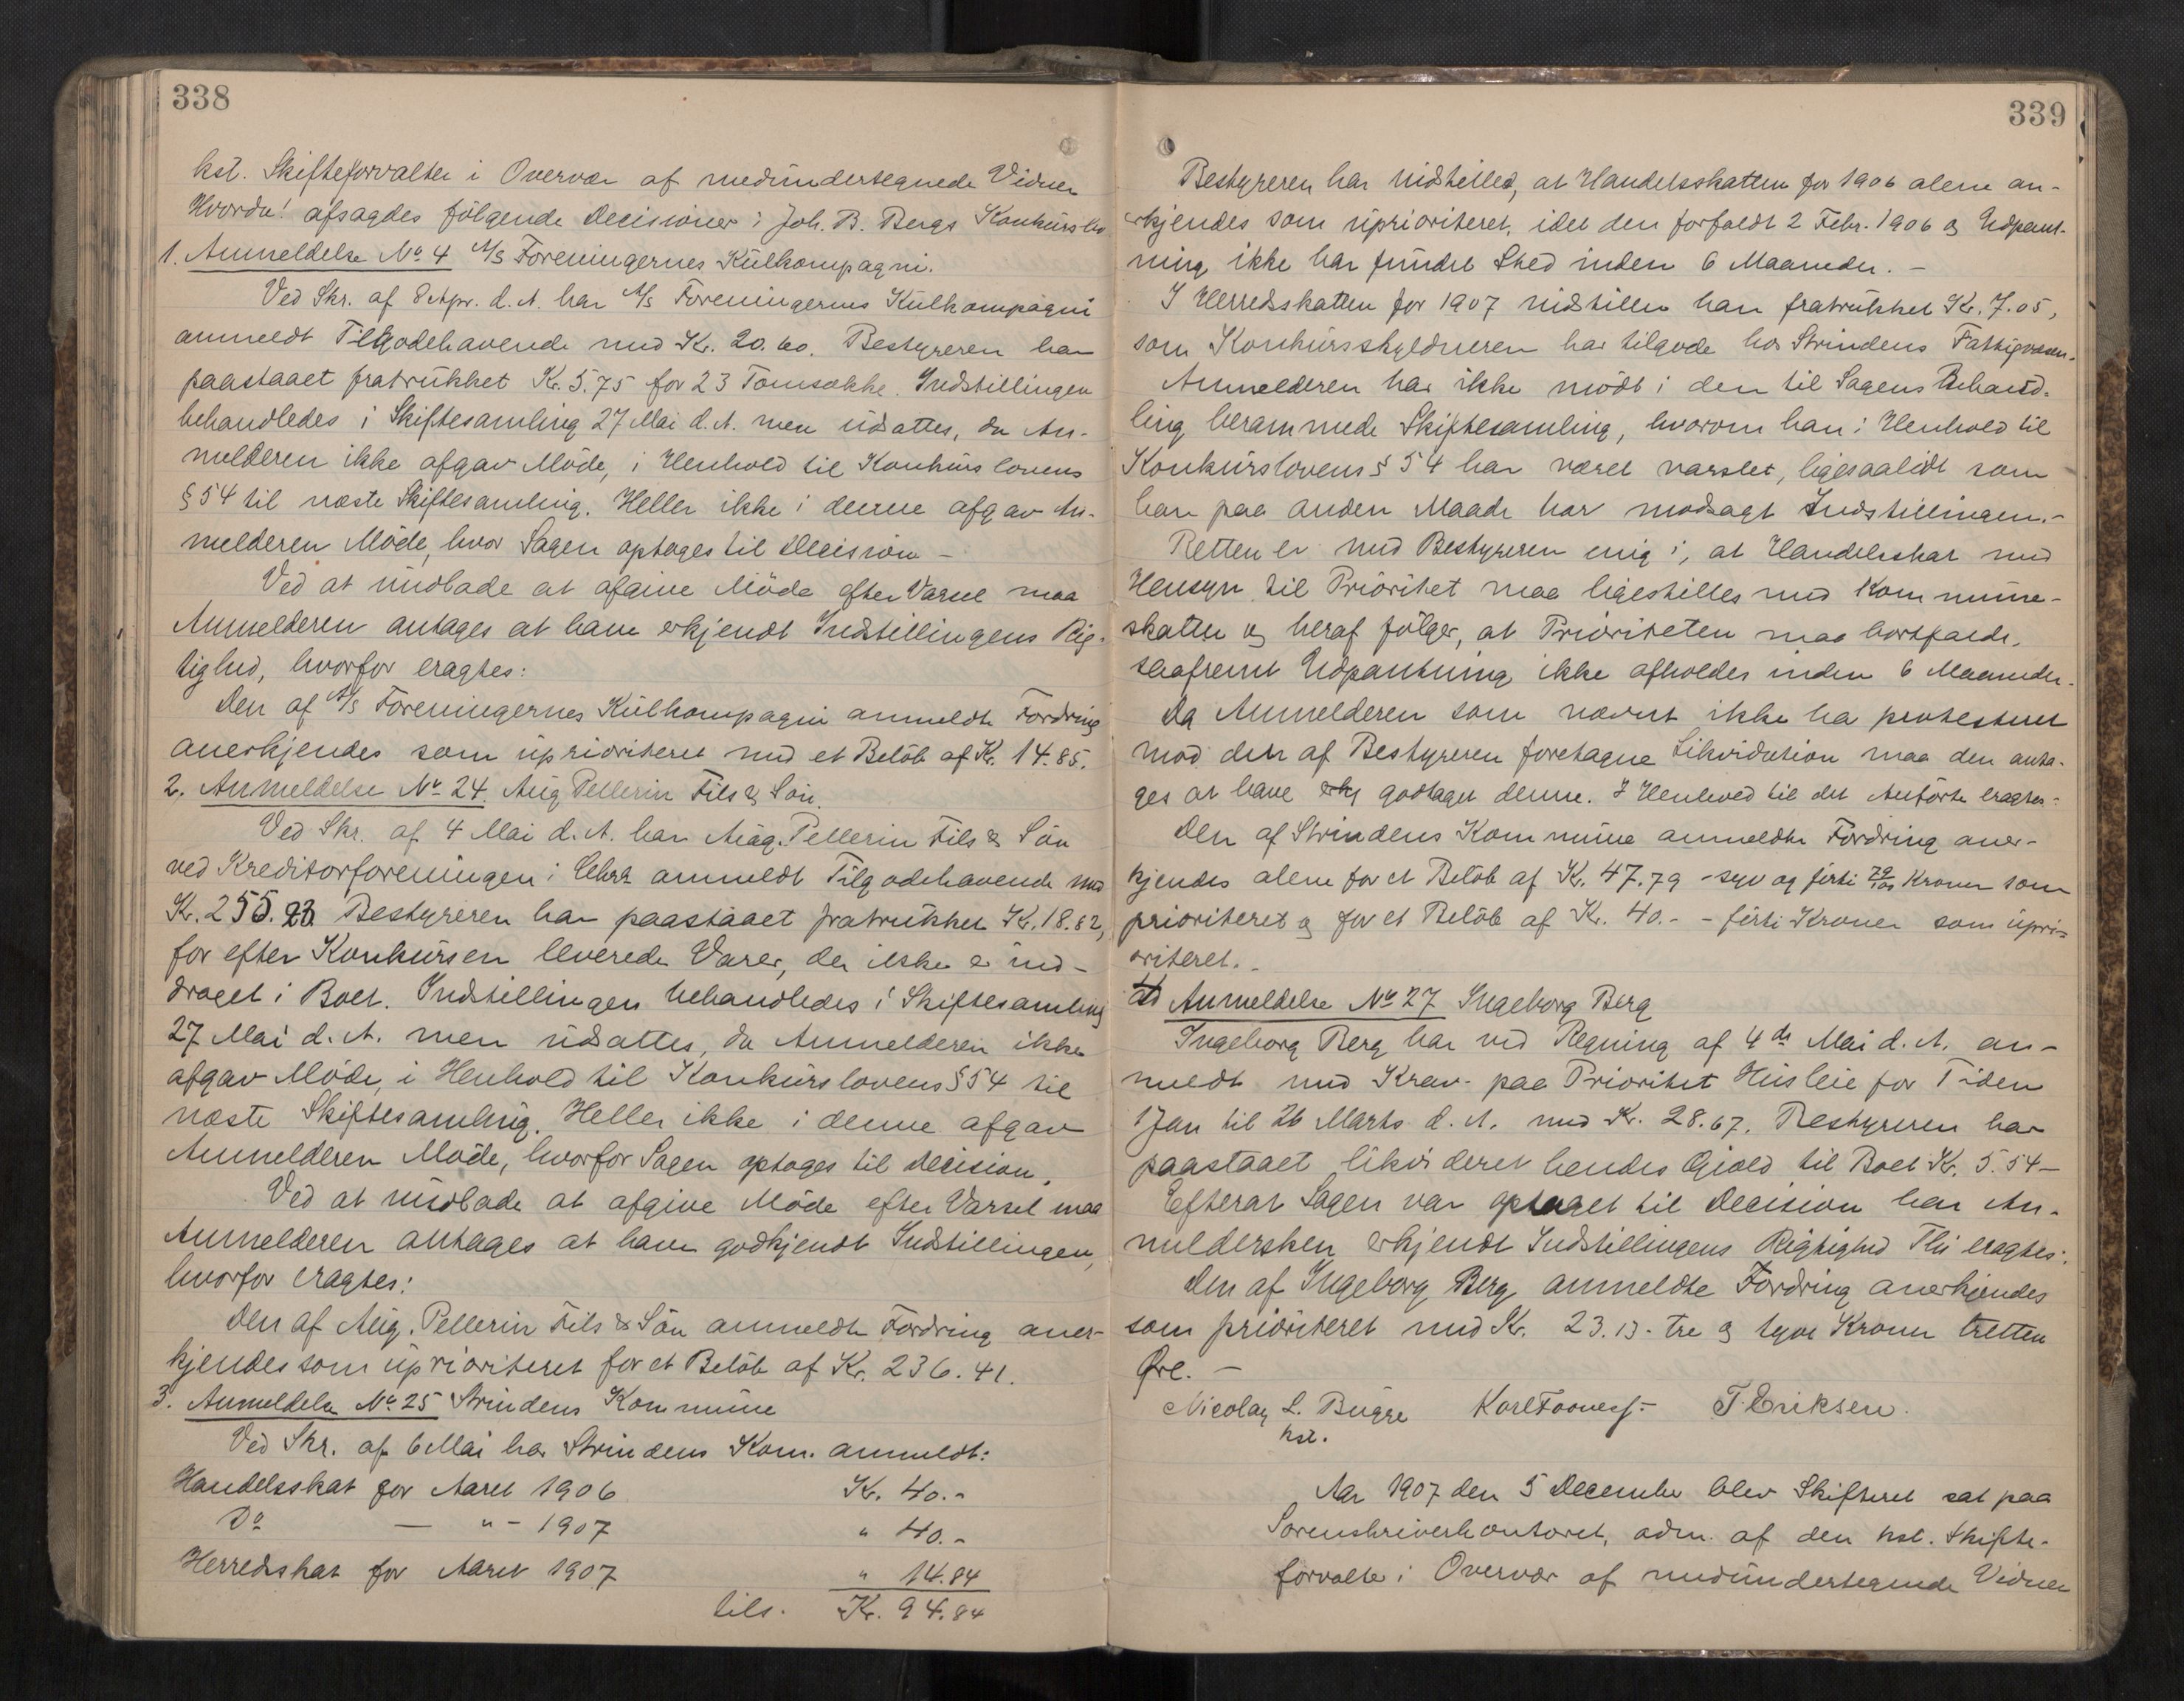 338
kst. Skifteforvalter i Overvær af medundertegnede Vidner
Hvorda! afsagdes følgende Decisioner i Joh. B. Bergs Konkursbo
1. Anmeldelse No 4 A/S Foreningernes Kulkompagni.
Ved Skr. af 8 Apr. d. A. har A/S Foreningernes Kulkompagni
anmeldt Tilgodehavende med Kr. 20.60. Bestyreren har
paastaaet fratrukket Kr. 5.75 for 23 Tomsække. Indstillingen
behandledes i Skiftesamling 27 Mai d. A. men udsattes, da An-
melderen ikke afgav Möde, i Henhold til Konkurslovens
§ 54 til næste Skiftesamling. Heller ikke i denne afgav An-
melderen Möde, hvor Sagen optoges til Decision –
Ved at undlade at afgive Möde efter Varsel maa
Anmelderen antages at have erkjendt Indstillingens Rig-
tighed, hvorfor eragtes:
Den af A/S Foreningernes Kulkompagni anmeldte Fordring
anerkjendes som uprioriteret med et Belöb af Kr. 14.85.
2. Anmeldelse No 24. Aug. Pellerin Fils & Sön.
Ved Skr. af 4 Mai d. A. har Aug. Pellerin Fils & Sön
ved Kreditorforeningen i Chra anmeldt Tilgodehavende med
Kr. 255.23. Bestyreren har paastaaet fratrukket Kr. 18.82,
for efter Konkursen leverede Varer, der ikke er ind-
draget i Boet. Indstillingen behandledes i Skiftesamling
27 Mai d. A. men udsattes, da Anmelderen ikke
afgav Möde, i Henhold til Konkurslovens § 54 til
næste Skiftesamling. Heller ikke i denne afgav
Anmelderen Möde, hvorfor Sagen optoges til Decision.
Ved at undlade at afgive Möde efter Varsel maa
Anmelderen antages at have godkjendt Indstillingen,
hvorfor eragtes:
Den af Aug. Pellerin Fils & Sön anmeldte Fordring aner-
kjendes som uprioriteret for et Belöb af Kr. 236.41.
3. Anmeldelse No 25 Strindens Kommune
Ved Skr. af 6 Mai har Strindens Kom. anmeldt:
Handelsskat for Aaret 1906 Kr. 40.-
Do — " – 1907 " 40.-
Herredsskat for Aaret 1907 " 14.84
tils. Kr. 94.84
339
Bestyreren har indstillet, at Handelsskatten for 1906 alene an-
erkjendes som uprioriteret, idet den forfaldt 2 Febr. 1906 og Udpant-
ning ikke har fundet Sted inden 6 Maaneder. –
I Herredsskatten for 1907 indstiller han fratrukket Kr. 7.05,
som Konkursskyldneren har tilgode hos Strindens Fattigvæsen.
Anmelderen har ikke mödt i den til Sagens Behand-
ling berammede Skiftesamling, hvorom han i Henhold til
Konkurslovens § 54 har været varslet, ligesaalidt som
han paa anden Maade har modsagt Indstillingen. –
Retten er med Bestyreren enig i, at Handelsskat med
Hensyn til Prioritet maa ligestilles med Kommune-
skatten og heraf fölger, at Prioriteten maa bortfalde,
saafremt Udpantning ikke afholdes inden 6 Maaneder.
Da Anmelderen som nævnt ikke ha protesteret
mod den af Bestyreren foretagne Likvidation maa den anta-
ges at have godtaget denne. I Henhold til det Anförte eragtes:
Den af Strindens Kommune anmeldte Fordring aner-
kjendes alene for et Belöb af Kr. 47.79 – syv og firti 79/100 Kroner som
prioriteret og for et Belöb af Kr. 40.- – firti Kroner som upri-
oriteret. –
Anmeldelse No 27 Ingeborg Berg
Ingeborg Berg har ved Regning af 4de Mai d. A. an-
meldt med Krav paa Prioritet Husleie for Tiden
1 Jan til 26 Marts d. A. med Kr. 28.67. Bestyreren har
paastaaet likvideret hendes Gjæld til Boet Kr. 5.54 –
Efterat Sagen var optaget til Decision har An-
meldersken erkjendt Indstillingens Rigtighed Thi eragtes:
Den af Ingeborg Berg anmeldte Fordring anerkjendes
som prioriteret med Kr. 23.13 – tre og tyve Kroner tretten
Øre. –
Nicolay L. Bugge T. Eriksen.
kst.
Aar 1907 den 5 December blev Skifteret sat paa
Sorenskriverkontoret, adm. af den kst. Skifte-
forvalter i Overvær af medundertegnede Vidner